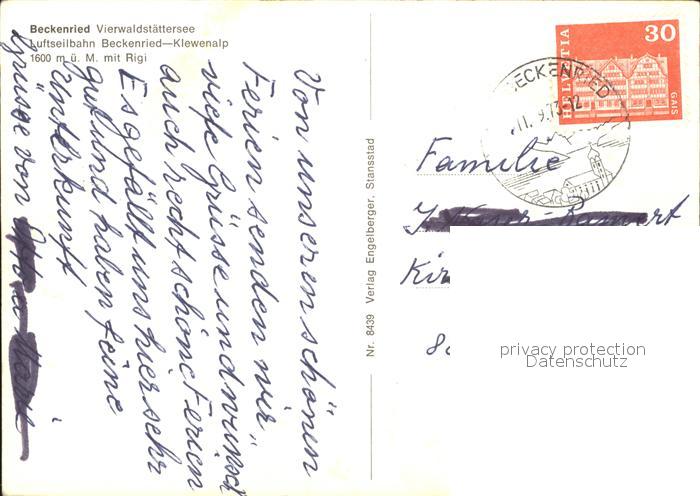 Beckenried Vierwaldstättersee
Luftseilbahn Beckenried—Klewenalp
1600 m ü. M. mit Rigi
Von unseren schönen
Ferien senden wir
viele Grüsse und wünsch
auch recht schöne Ferien
Es gefällt uns hier sehr
gut und haben feine
Unterkunft
Grüsse von
Nr. 8439 Verlag Engelberger, Stansstad
HELVETIA
30
GAIS
BECKENRIED
11. 9.73-12
Familie
Kir
80
privacy protection
Datenschutz